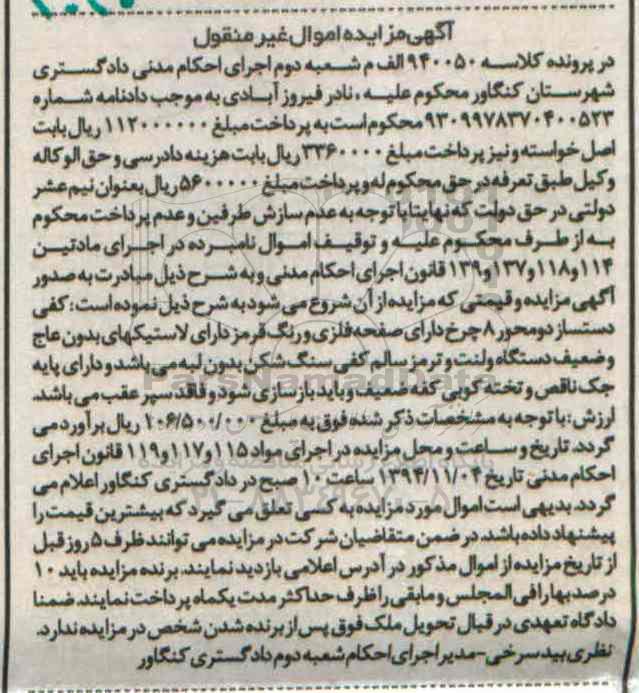 آگهی مزایده اموال غیر منقول
در پرونده کلاسه ۹۴۰۰۵۰ الف م شعبه دوم اجرای احکام مدنی دادگستری
شهرستان کنگاور محکوم علیه ، نادر فیروز آبادی به موجب دادنامه شماره
۹۳۰۹۹۷۸۳۷۰۴۰۰۵۲۳ محکوم است به پرداخت مبلغ ۱۱۲۰۰۰۰۰۰ ریال بابت
اصل خواسته و نیز پرداخت مبلغ ۳۳۶۰۰۰۰ ریال بابت هزینه دادرسی و حق الوکاله
وکیل طبق تعرفه در حق محکوم له و پرداخت مبلغ ۵۶۰۰۰۰۰ ریال بعنوان نیم عشر
دولتی در حق دولت که نهایتا با توجه به عدم سازش طرفین و عدم پرداخت محکوم
به از طرف محکوم علیه و توقیف اموال نامبرده در اجرای مادتین
۱۱۴ و ۱۱۸ و ۱۳۷ و ۱۳۹ قانون اجرای احکام مدنی و به شرح ذیل مبادرت به صدور
آگهی مزایده و قیمتی که مزایده از آن شروع می شود به شرح ذیل نموده است : کفی
دستساز دو محور ۸ چرخ دارای صفحه فلزی و رنگ قرمز دارای لاستیکهای بدون عاج
و ضعیف دستگاه ولنت و ترمز سالم کفی سنگ شکن بدون لبه می باشد و دارای پایه
جک ناقص و تخته کوبی کفه ضعیف و باید باز سازی شود و فاقد سپر عقب می باشد.
ارزش : با توجه به مشخصات ذکر شده فوق به مبلغ ۱۰۶/۵۰۰/۰۰۰ ریال برآورد می
گردد. تاریخ و ساعت و محل مزایده در اجرای مواد ۱۱۵ و ۱۱۷ و ۱۱۹ قانون اجرای
احکام مدنی تاریخ ۱۳۹۴/۱۱/۰۴ ساعت ۱۰ صبح در دادگستری کنگاور اعلام می
گردد. بدیهی است اموال مورد مزایده به کسی تعلق می گیرد که بیشترین قیمت را
پیشنهاد داده باشد. در ضمن متقاضیان شرکت در مزایده می توانند ظرف ۵ روز قبل
از تاریخ مزایده از اموال مذکور در آدرس اعلامی بازدید نمایند. برنده مزایده باید ۱۰
درصد بها را فی المجلس و مابقی را ظرف حداکثر مدت یکماه پرداخت نمایند. ضمنا
دادگاه تعهدی در قبال تحویل ملک فوق پس از برنده شدن شخص در مزایده ندارد.
نظری بید سرخی - مدیر اجرای احکام شعبه دوم دادگستری کنگاور
ParsNamadData